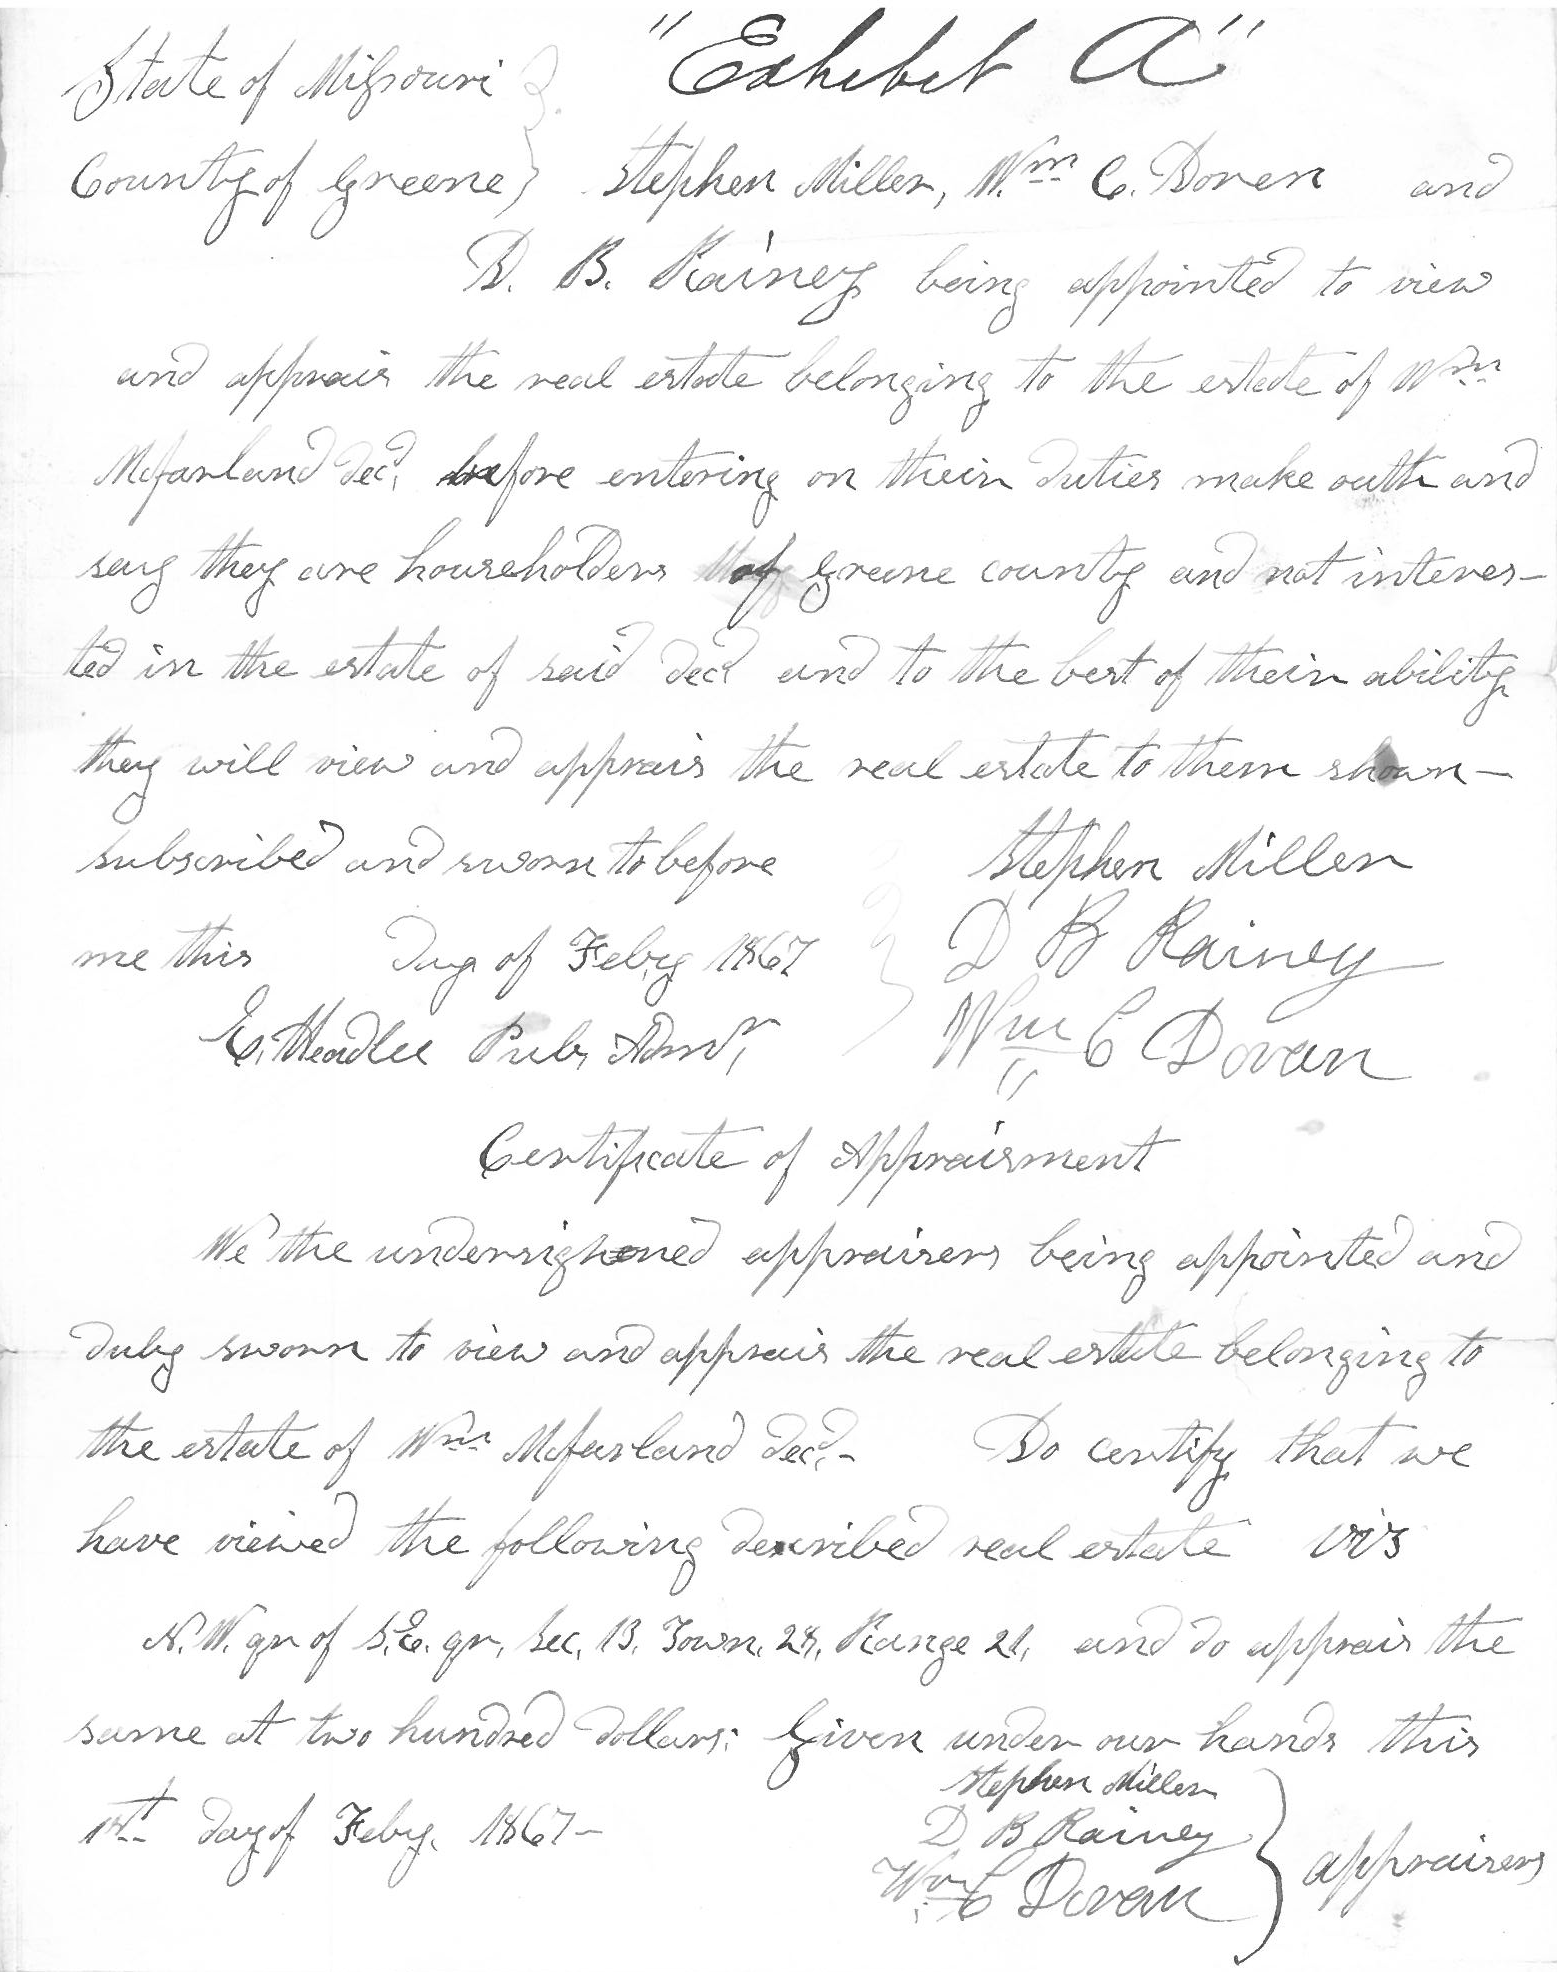 "Exhibit A"
State of Missouri
County of Greene } Stephen Miller, Wm C. Doren and
D. B. Rainey being appointed to view
and apprais the real estate belonging to the estate of Wm
Mcfarland decd, before entering on their duties make oath and
say they are householders of Greene county and not interes-
ted in the estate of said decd and to the best of their ability
they will view and apprais the real estate to them shown-
subscribed and sworn to before
me this day of Feby 1867
E. Headlee Pub, Admr,
Stephen Miller
D B Rainey
Wm C Dovan
Certificate of Appraisment
We the undersighned appraisers being appointed and
duly sworn to view and apprais the real estate belonging to
the estate of Wm Mcfarland decd,- Do certify that we
have viewed the following described real estate vis
N.W. qr of S.E. qr, Sec, 13, Town, 28, Range 21, and do apprais the
same at two hundred dollars: Given under our hands this
1st day of Feby, 1867-
Stephen Miller
D. B Rainey
Wm C Dovan
} appraisers